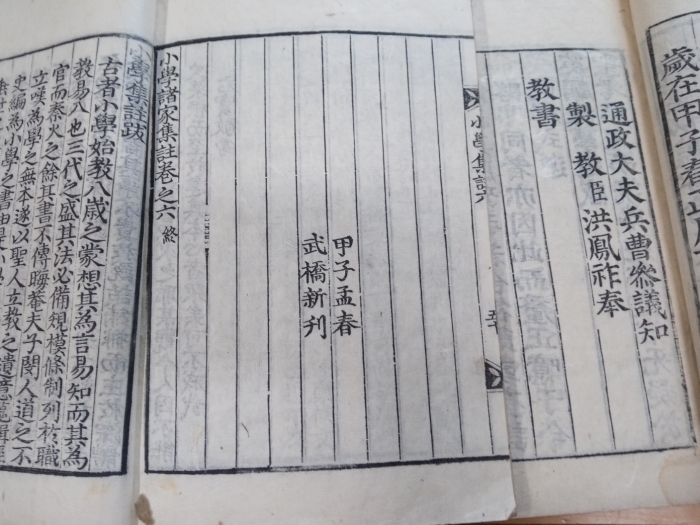 歲在甲子春
通政大夫兵曹參議知
製 教臣洪鳳祚奉
教書
小學集註六
甲子孟春
武橋新刊
小學諸家集註卷之六 終
小學集註跋
古者小學始教八歲之蒙想其為言易知而其為
教易入也三代之盛其法必備規模條制列於職
官而秦火之餘其書不傳晦菴夫子閔人道之不
立嘆為學之無本遂以聖人立教之遺意蒐輯
史編為小學之書